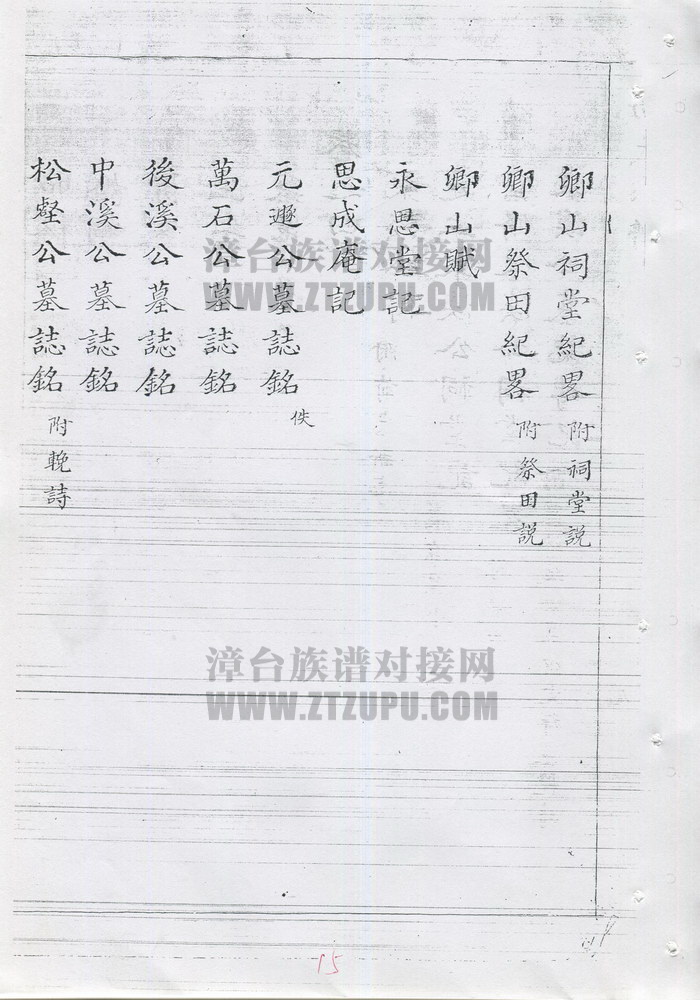 鄉山祠堂紀畧 附祠堂説
鄉山祭田紀畧 附祭田説
鄉山賦
永思堂記
思成庵記
元遯公墓誌銘 佚
萬石公墓誌銘
後溪公墓誌銘
中溪公墓誌銘
松壑公墓誌銘 附輓詩
漳台族谱对接网
WWW.ZTZUPU.COM
漳台族谱对接网
WWW.ZTZUPU.COM
15